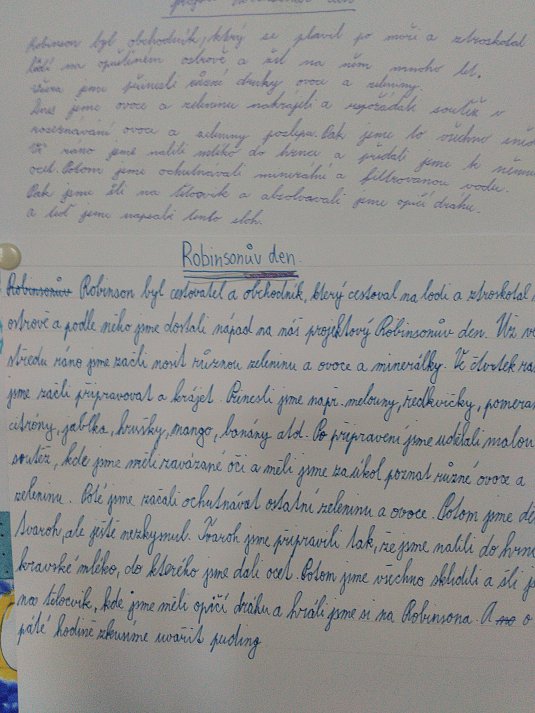 Robinson byl obchodník, který se plavil po moři a ztroskotal
lodí na opuštěném ostrově a žil na něm mnoho let.
Včera jsme přinesli různé druhy ovoce a zeleniny.
Dnes jsme ovoce a zeleninu nakrájeli a uspořádali soutěž v
rozeznávání ovoce a zeleniny poslepu. Pak jsme to všechno
ráno jsme nalili mléko do hrnce a přidali jsme k němu
ocet. Potom jsme ochutnávali minerální a filtrovanou vodu.
Pak jsme šli na tělocvik a absolvovali jsme opičí dráhu.
a teď jsme napsali tento sloh.
Robinsonův den.
Robinsonův Robinson byl cestovatel a obchodník, který cestoval na lodi a ztroskotal
ostrově a podle něho jsme dostali nápad na náš projektový Robinsonův den. Už ve
středu ráno jsme začli nosit různou zeleninu a ovoce a minerálky. Ve čtvrtek
jsme začli připravovat a krájet. Přinesli jsme např. melouny, ředkvičky,
citróny, jablka, hrušky, mango, banány atd. Po připravení jsme udělali malou
soutěž, kde jsme měli zavázané oči a měli jsme za úkol poznat různé ovoce a
zeleninu. Poté jsme začali ochutnávat ostatní zeleninu a ovoce. Potom jsme
tvaroh, ale ještě nezkysnul. Tvaroh jsme připravili tak, že jsme nalili do
kravské mléko, do kterého jsme dali ocet. Potom jsme všechno sklidili a šli
na tělocvik, kde jsme měli opičí dráhu a hráli jsme si na Robinsona. A o
páté hodině zkusíme uvařit puding